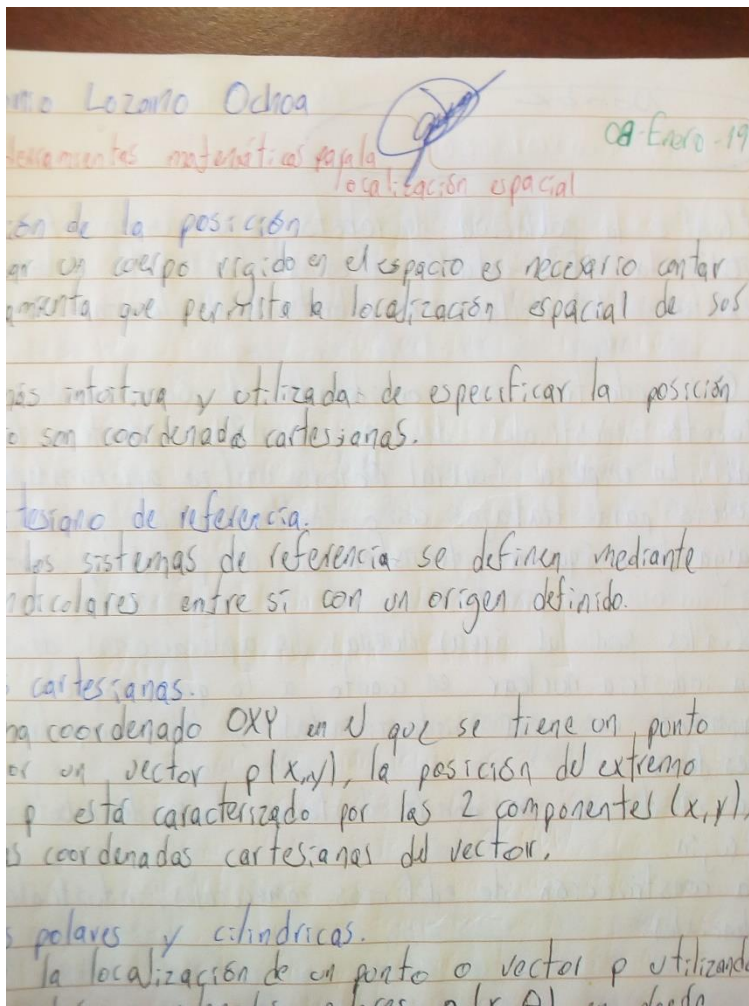 Lozano Ochoa
08-Enero-19
matemáticas para la
localización espacial
ión de la posición
ar un cuerpo rigido en el espacio es necesario contar
amienta que permita la localización espacial de sus
más intuitiva y utilizada de especificar la posición
o son coordenadas cartesianas.
tesiano de referencia.
los sistemas de referencia se definen mediante
ndiculares entre sí con un origen definido.
cartesianas.
ma coordenado OXY en el que se tiene un punto
or un vector p(x,y), la posición del extremo
p está caracterizado por las 2 componentes (x,y),
s coordenadas cartesianas del vector.
s polares y cilindricas.
la localización de un punto o vector p utilizando
p(r, θ) donde